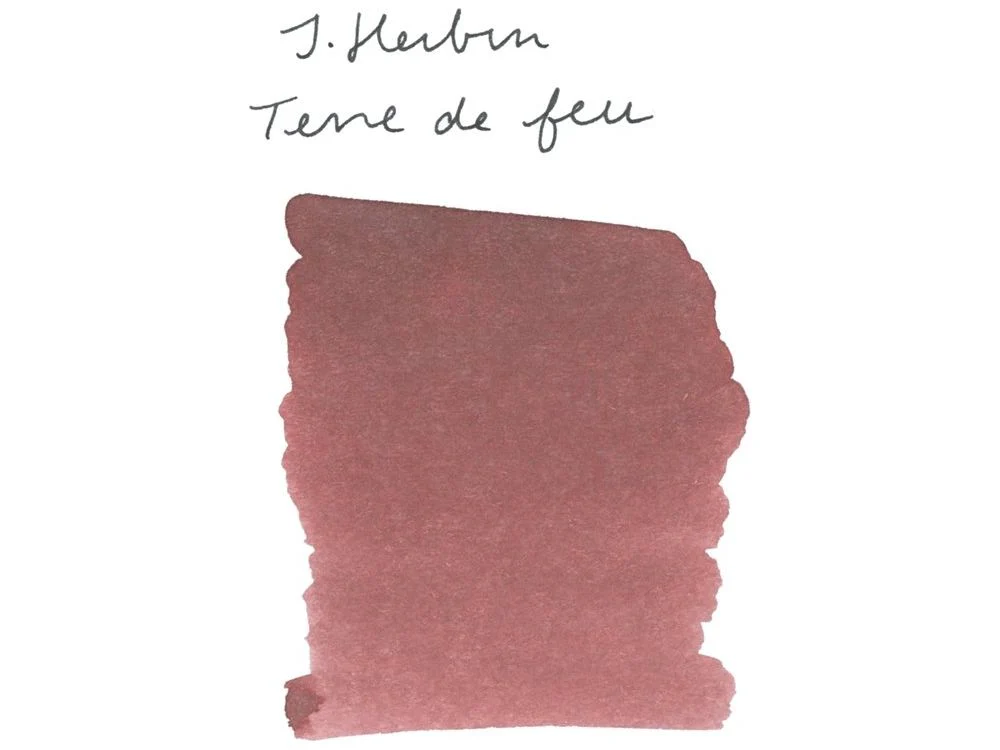 J. Herbin
Terre de feu